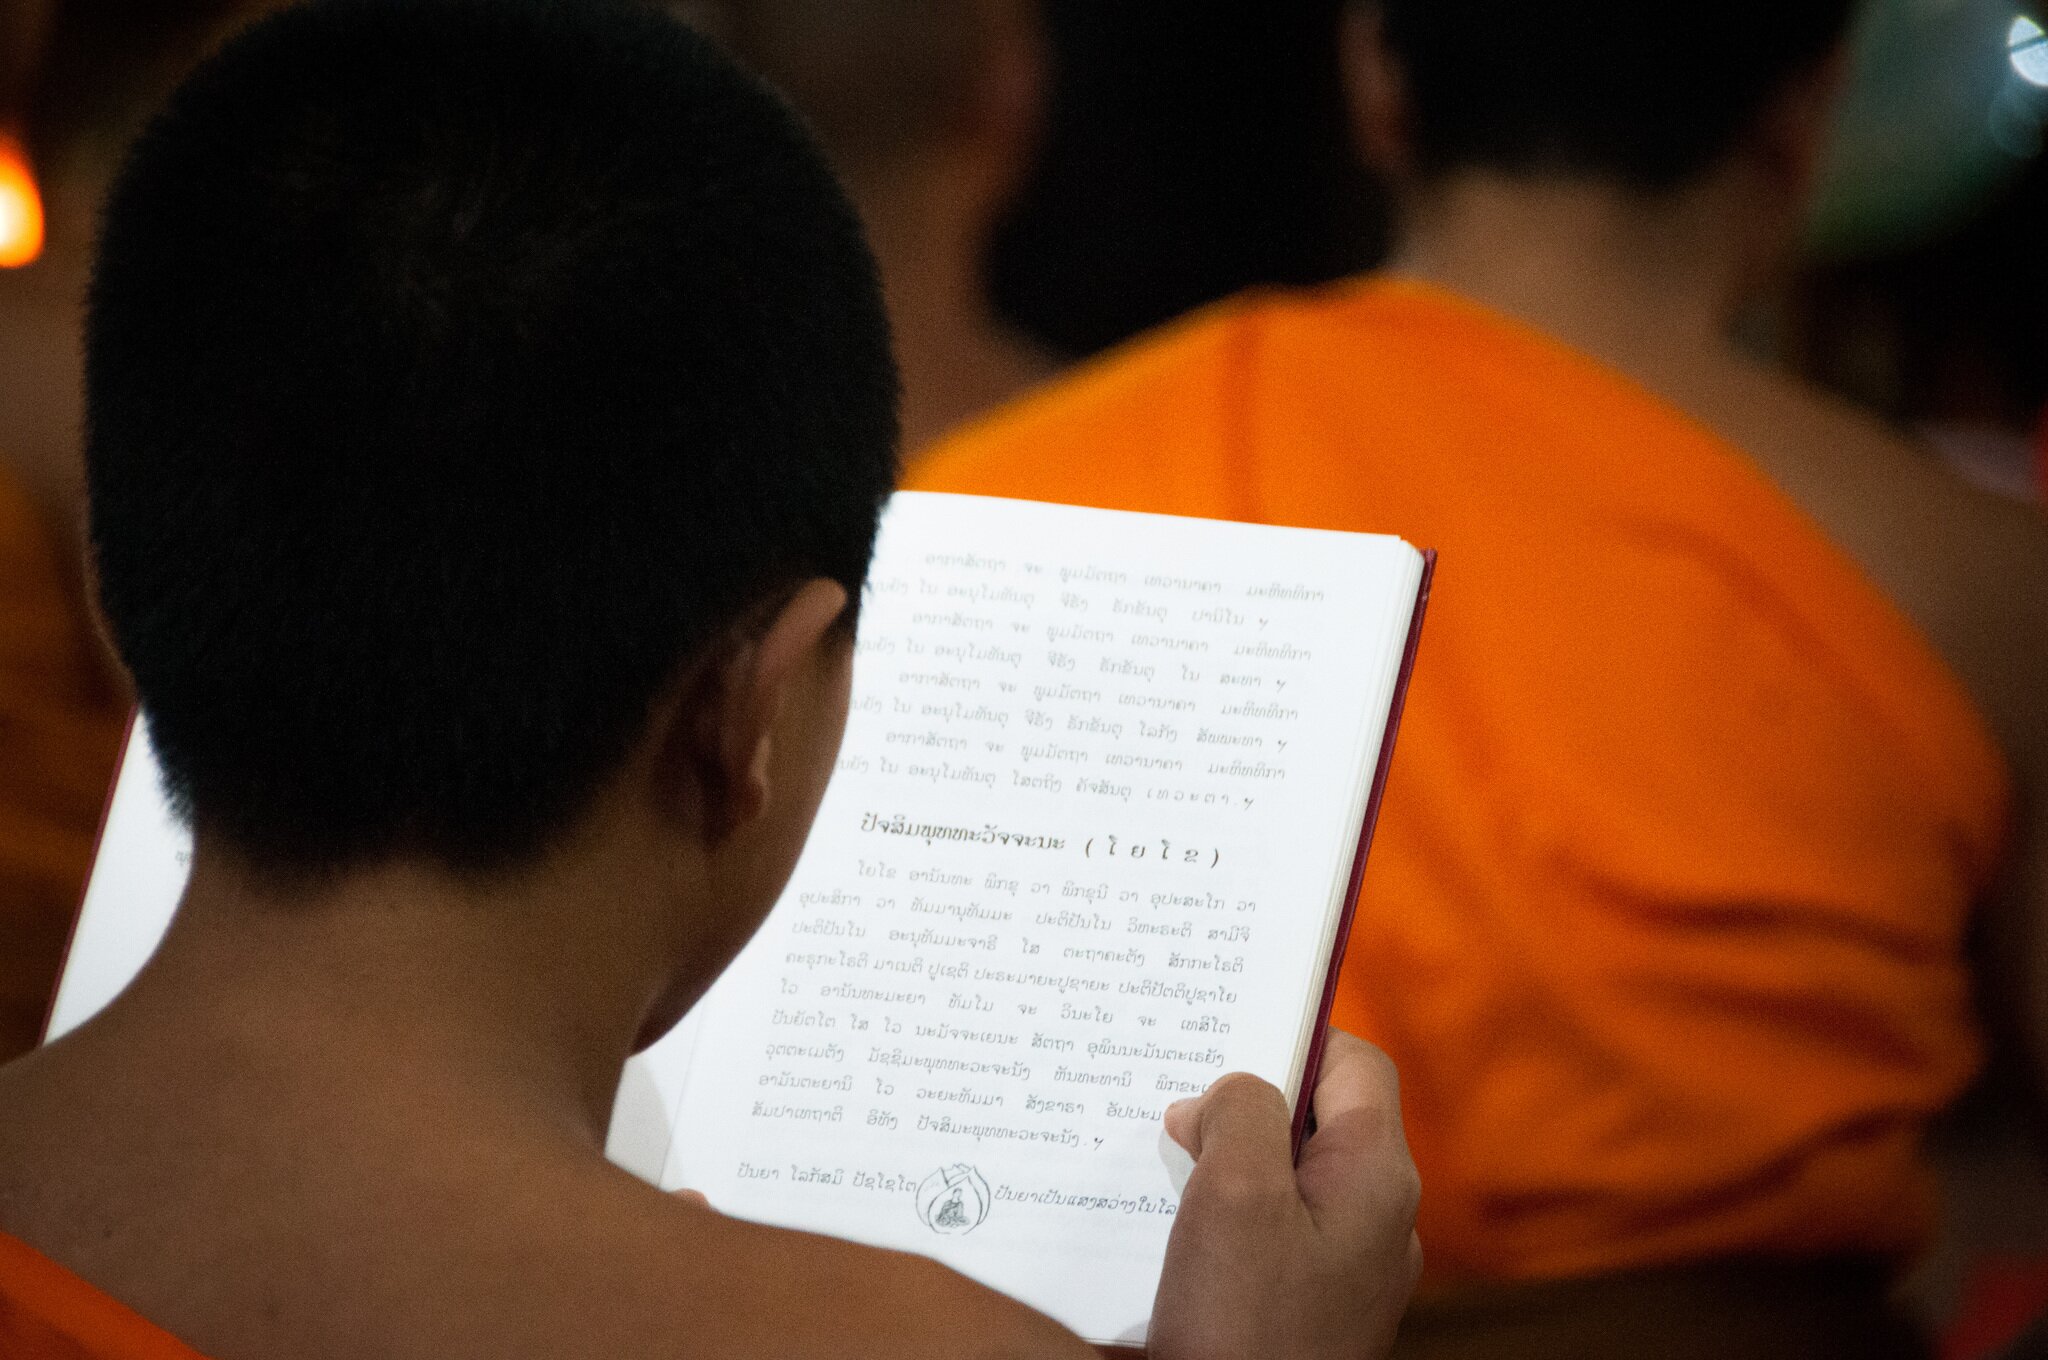 ອາກາສັຕຖາ ຈະ ພູມມັຕຖາ ເທວານາຄາ ມະຫິທທິກາ
ໂນ ອະນຸໂມທັນຕຸ ຈີຣັງ ຣັກຂັນຕຸ ປານິໂນ ຯ
ອາກາສັຕຖາ ຈະ ພູມມັຕຖາ ເທວານາຄາ ມະຫິທທິກາ
ໂນ ອະນຸໂມທັນຕຸ ຈີຣັງ ຣັກຂັນຕຸ ໂນ ສະທາ ຯ
ອາກາສັຕຖາ ຈະ ພູມມັຕຖາ ເທວານາຄາ ມະຫິທທິກາ
ໂນ ອະນຸໂມທັນຕຸ ຈີຣັງ ຣັກຂັນຕຸ ໂລກັງ ສັພພະທາ ຯ
ອາກາສັຕຖາ ຈະ ພູມມັຕຖາ ເທວານາຄາ ມະຫິທທິກາ
ໂນ ອະນຸໂມທັນຕຸ ໂສຕຖິງ ຄັຈສັນຕຸ ເທວະຕາ.ຯ
ປັຈສິມພຸທທະວັຈຈະນະ (ໂຍໂຂ)
ໂຍໂຂ ອານັນທະ ພິກຂຸ ວາ ພິກຂຸນີ ວາ ອຸປະສະໂກ ວາ
ອຸປະສິກາ ວາ ທັມມານຸທັມມະ ປະຕິປັນໂນ ວິຫະຣະຕິ ສາມີຈິ
ປະຕິປັນໂນ ອະນຸທັມມະຈາຣີ ໂສ ຕະຖາຄະຕັງ ສັກກະໂຣຕິ
ຄະຣຸກະໂຣຕິ ມາເນຕິ ປູເຊຕິ ປະຣະມາຍະປູຊາຍະ ປະຕິປັຕຕິປູຊາໂຍ
ໂວ ອານັນທະມະຍາ ທັມໂມ ຈະ ວິນະໂຍ ຈະ ເທສິໂຕ
ປັນຍັຕໂຕ ໂສ ໂວ ນະມັຈຈະເຍນະ ສັຕຖາ ອຸພິນນະມັນຕະເຣຍັງ
ວຸຕຕະເມຕັງ ມັຊຊິມະພຸທທະວະຈະນັງ ຫັນທະທານິ
ອາມັນຕະຍານິ ໂວ ວະຍະທັມມາ ສັງຂາຣາ
ສັມປາເທຖາຕິ ອິທັງ ປັຈສິມະພຸທທະວະຈະນັງ.ຯ
ປັນຍາ ໂລກັສມິ ປັຊໂຊໂຕ ປັນຍາເປັນແສງສວ່າງໃນ